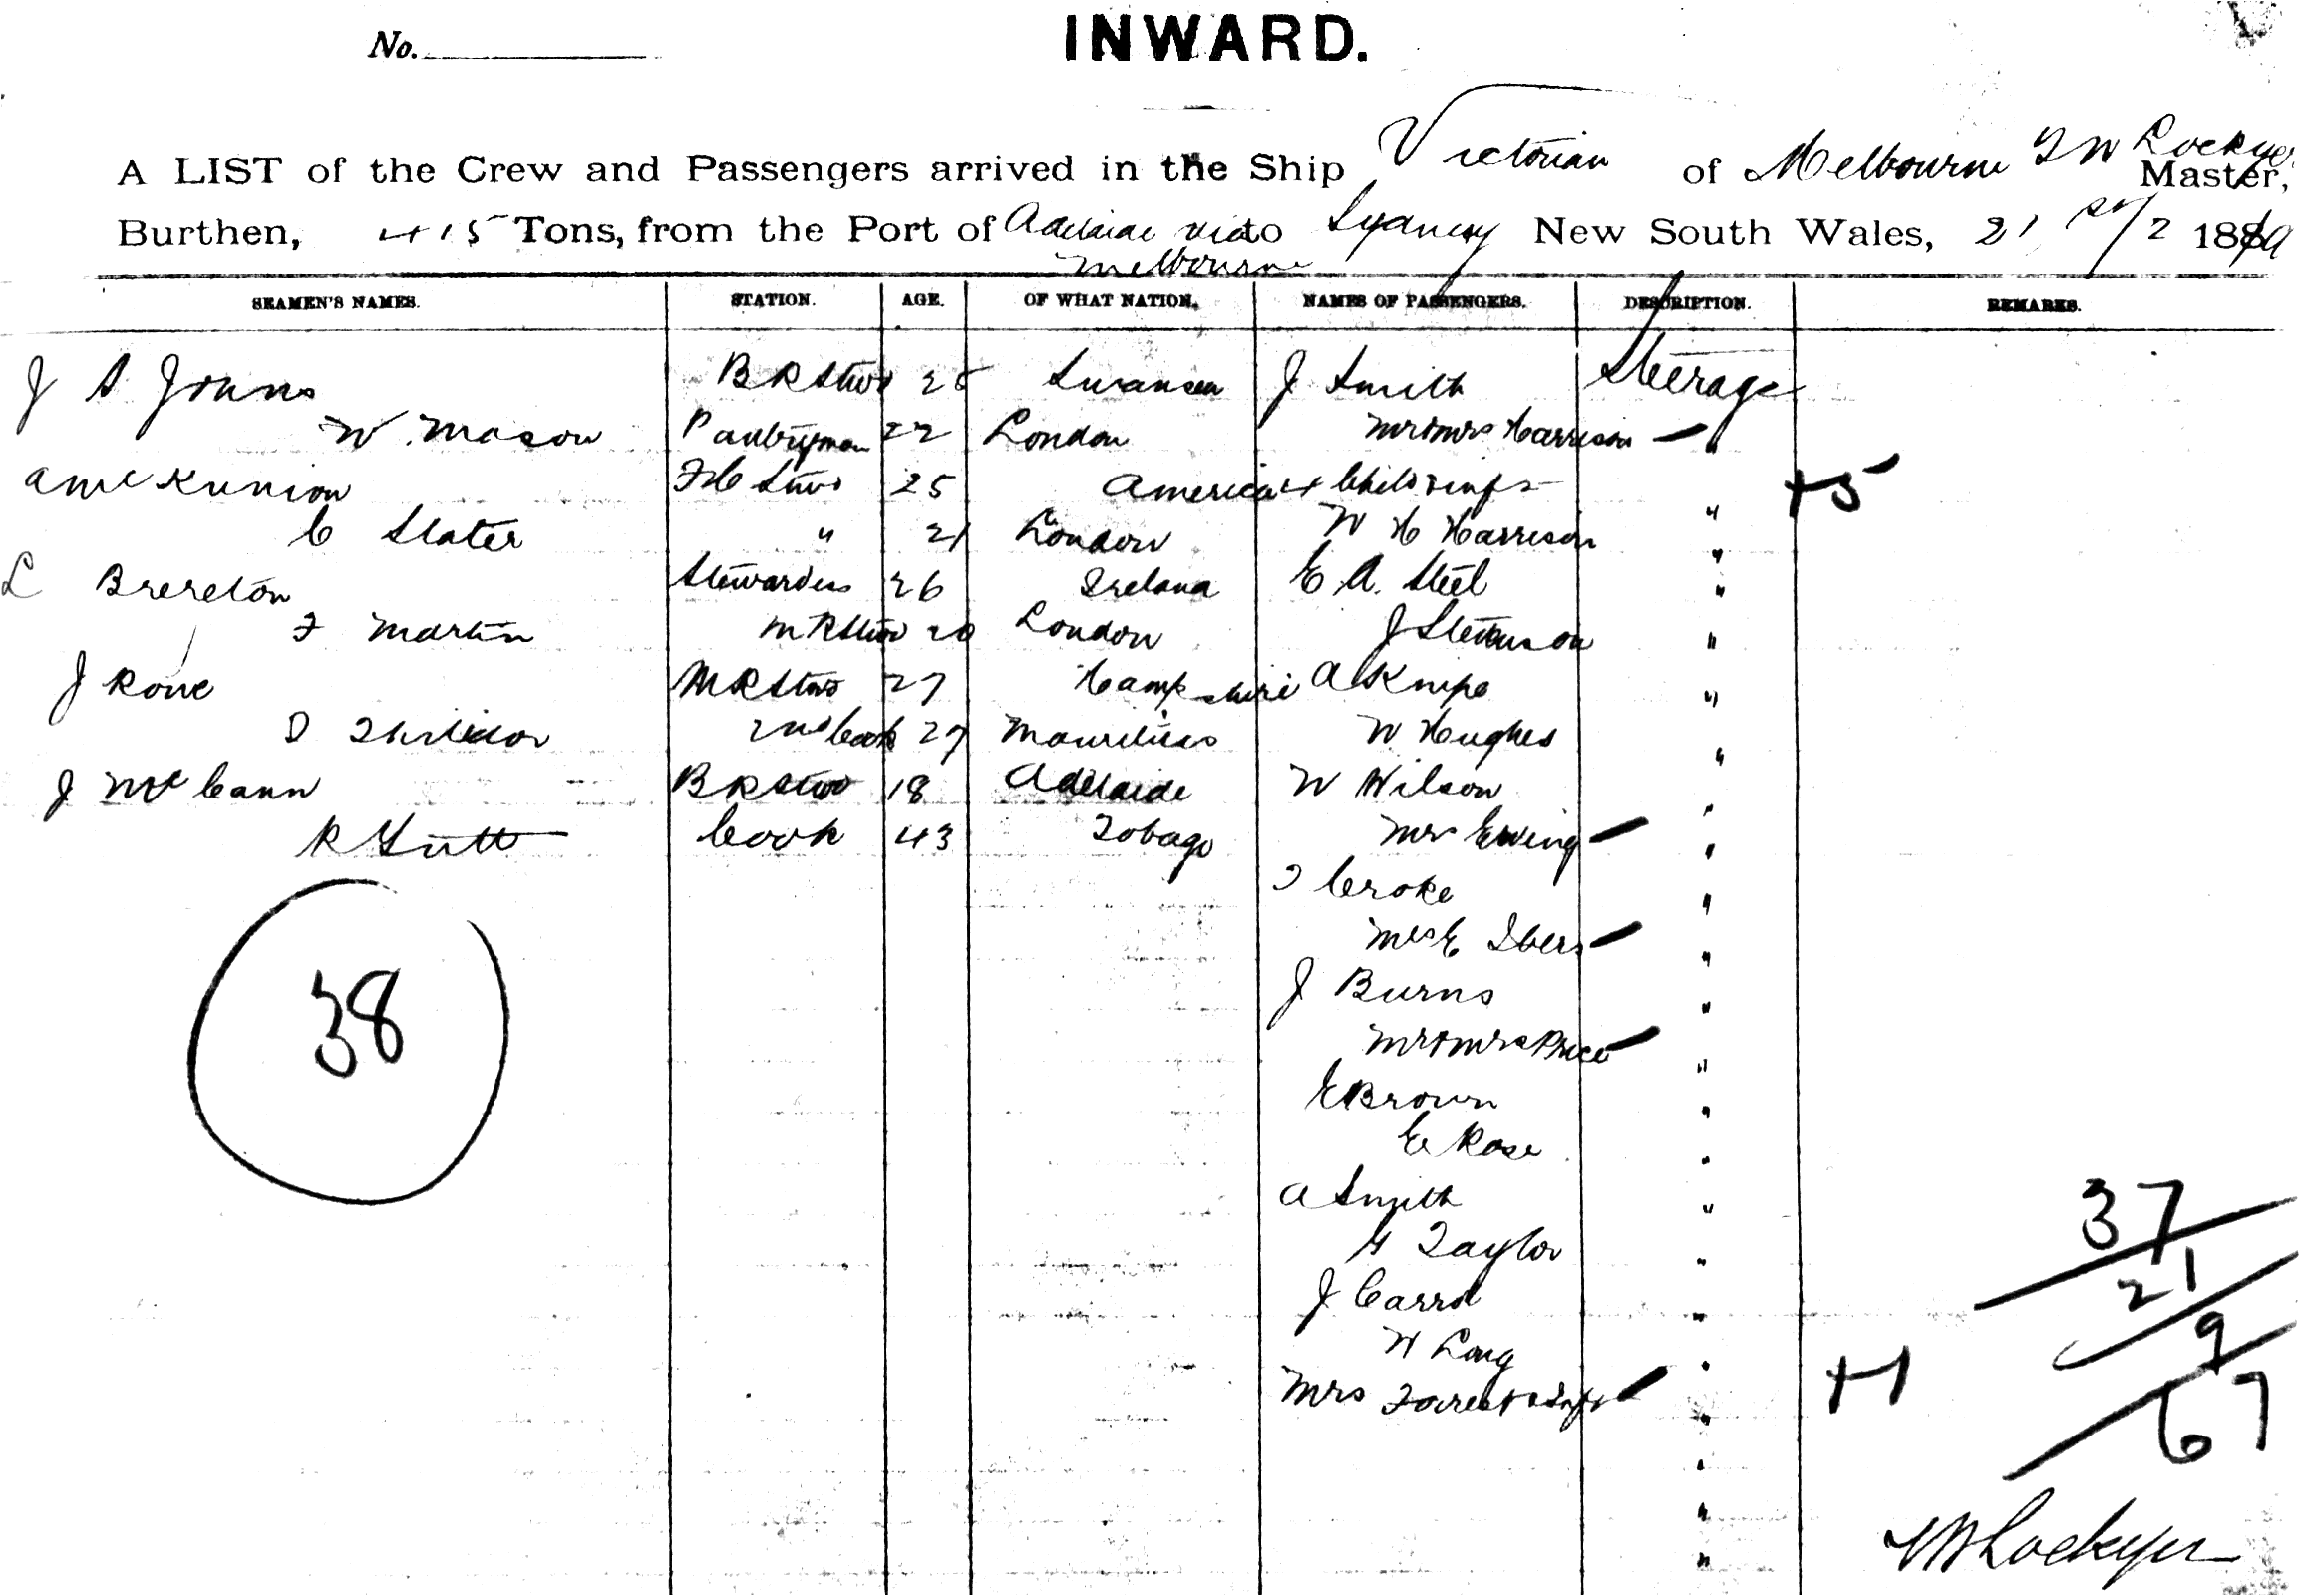 No.
INWARD.
A LIST of the Crew and Passengers arrived in the Ship Victorian of Melbourne T W Lockyer Master,
Burthen, 415 Tons, from the Port of Adelaide via to Sydney New South Wales, 21 st/2 18
Melbourne
SEAMEN'S NAMES. STATION. AGE. OF WHAT NATION. NAMES OF PASSENGERS. DESCRIPTION. REMARKS.
J S Johns B R Stwd 25 Swansea J Smith Steerage
W. Mason Pantryman 22 London Mr & Mrs Harrison "
A McKunion F C Stwd 25 America 4 Child & inft +5
C Slater " 21 London W H Harrison "
L Brereton Stewardess 26 Ireland E A. Steel "
F Martin M R Stwd 20 London J Stevenson "
J Rowe M R Stwd 27 Hampshire A Knipe "
D 2nd Cook 27 Mauritius W Hughes "
J McCann B R Stwd 18 Adelaide W Wilson "
R Cook 43 Tobago Mrs Ewing "
Croke "
Mrs E "
J Burns "
38
Mr & Mrs Price "
E Brown "
E Rose "
A Smith "
G Taylor "
J Carrol "
W Long "
Mrs Forrest & Inft " +1
37
21
9
67
T W Lockyer